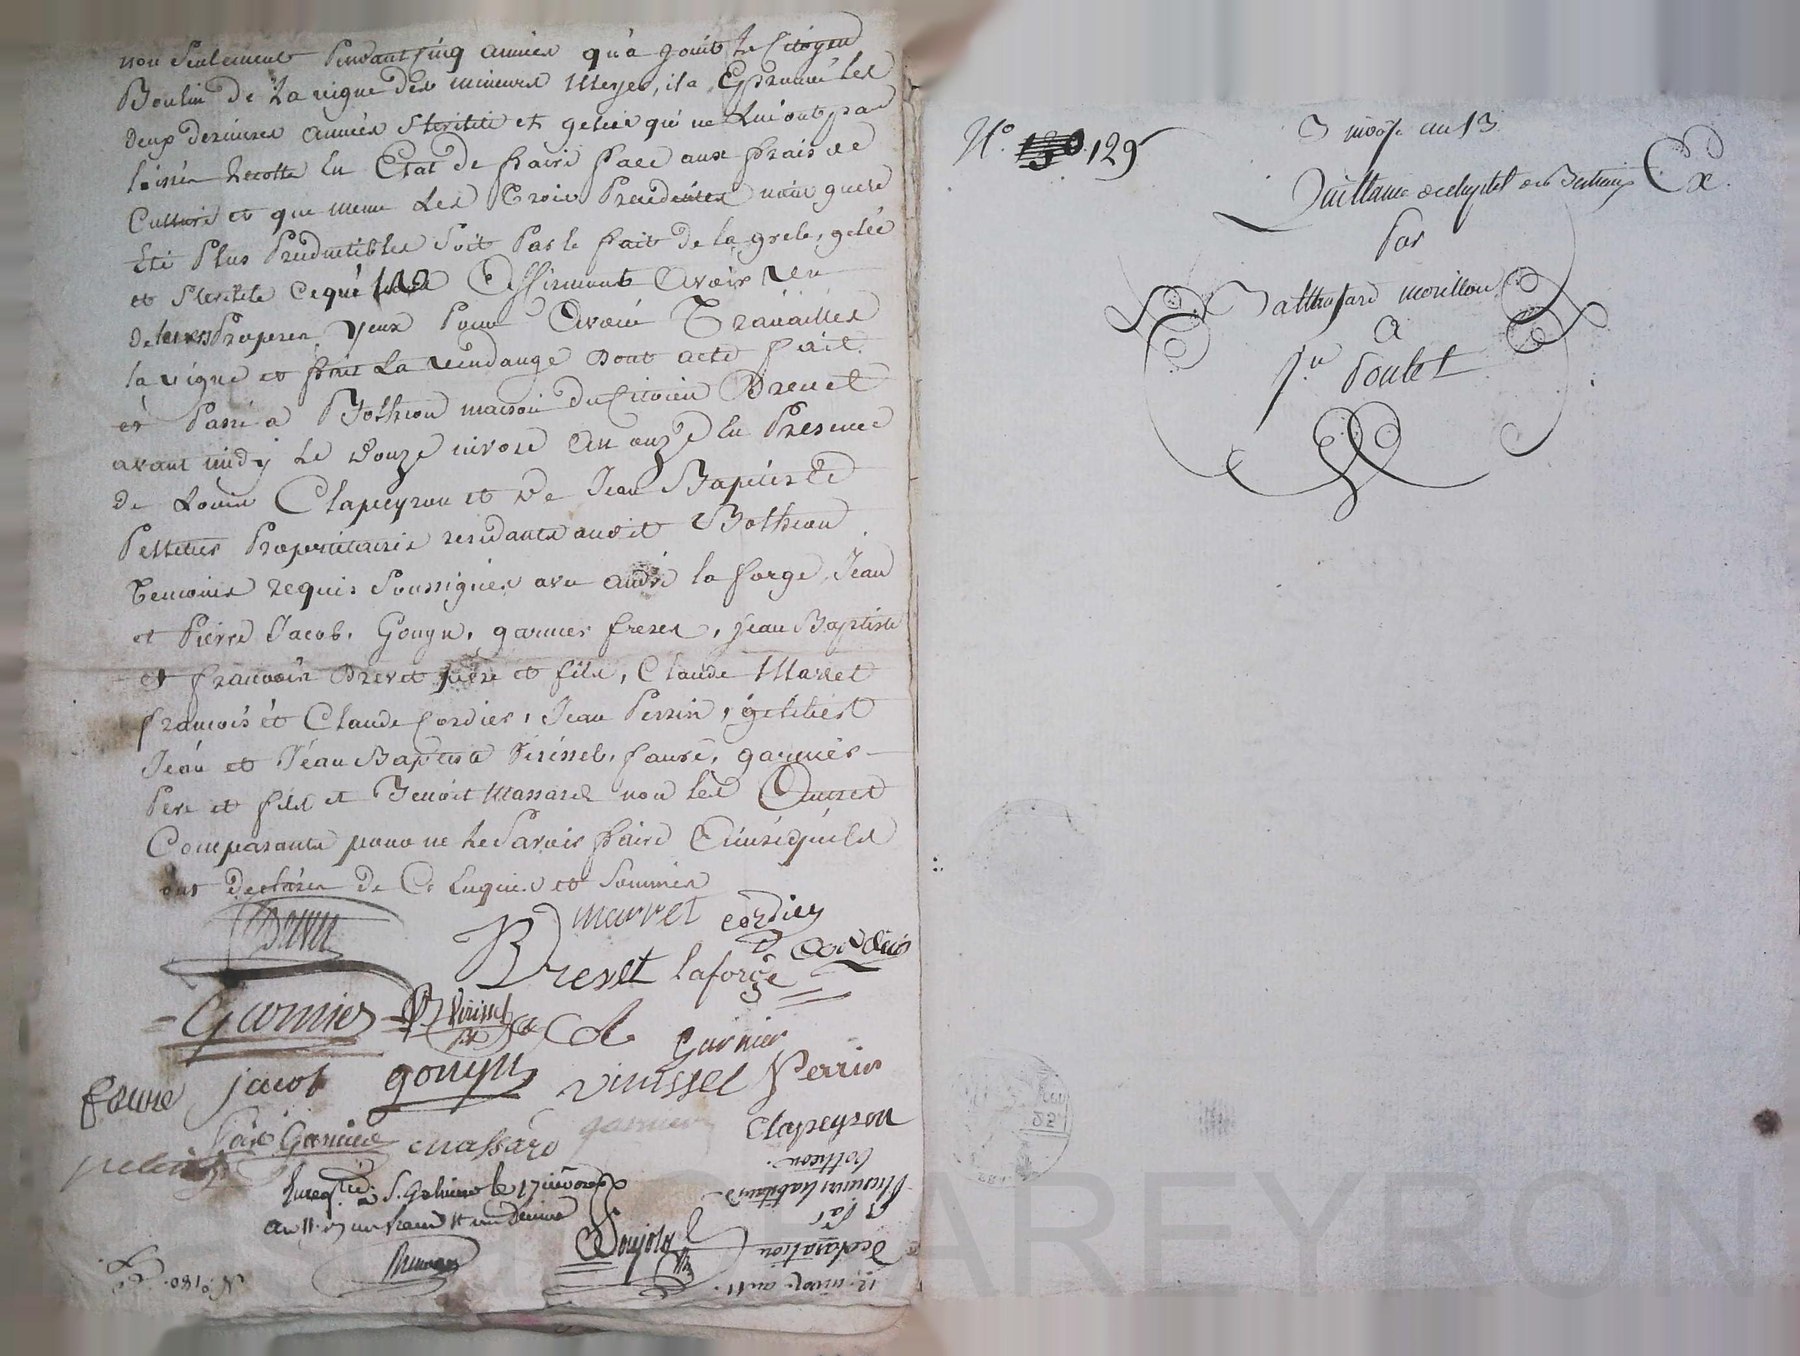 non seulement Pendant Cinq années qu'a jouit le Citoyen
Boulin de La vigne des mineurs Meyer, il a Eprouvé les
deux dernieres années sterilité et gelées qui ne Lui ont pas
laissé Recolte En Etat de faire face aux frais de
Culture et que meme Les Trois Precedentes n'ont guere
Eté Plus Productibles soit Par le fait de la grele, gelée
et sterilité Ce que Affirment Avoir vu
de leurs Propres yeux Pour Avoir Travaillés
la vigne et fait La vendange Dont acte fait
et Passé a Botheon maison du Citoien Drevet
avant midy Le Douze nivose An onze En Presence
de Louis Clapeyron et De Jean Baptiste
Pelletier Proprietaires residants audit Botheon
Temoins Requis Soussignés avec André laforge, Jean
et Pierre Jacob, Gouyn, garnier freres, Jean Baptiste
et francois Drevet pere et fils, Claude Marret
francois et Claude Cordier, Jean Perrin,
Jean et Jean Baptiste Virissel, faure, garnier
Pere et fils et Benoit Massard non Les Autres
Comparants pour ne Le Savoir faire Ainsi qu'ils
ont declarés de Ce Enquis et Sommés
marret Cordier
Drevet laforge Cordier
Garnier Virissel garnier
faure jacob gouyn Virissel Perrin
Garnier Massard garnier Clapeyron
Enregtré à St. Galmier le 17 nivose
an 11
Goujols
12 nivose an 11.
Declaration
Par
habitants
Botheon.
N°. 180.
N°. 129
3 nivose an 13
Quittance de cheptel de Bestiaux Ex.
Par
Balthazard morillon
A
Jn Poulet
CHAREYRON